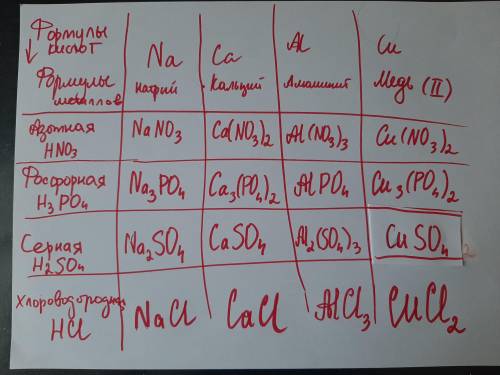 Формулы кислот
Формулы металлов
Na Натрий
Ca Кальций
Al Алюминий
Cu Медь (II)
Азотная HNO3
NaNO3
Ca(NO3)2
Al(NO3)3
Cu(NO3)2
Фосфорная H3PO4
Na3PO4
Ca3(PO4)2
AlPO4
Cu3(PO4)2
Серная H2SO4
Na2SO4
CaSO4
Al2(SO4)3
CuSO4
Хлороводородная HCl
NaCl
CaCl
AlCl3
CuCl2